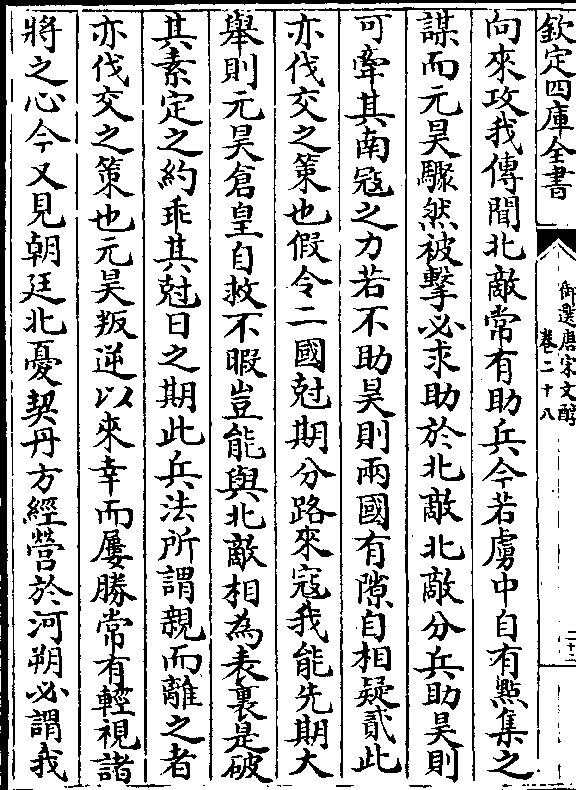 欽定四庫全書
御選唐宋文醇
卷二十八
向來攻我傳聞北敵常有助兵今若虜中自有點集之
謀而元昊驟然被擊必求助於北敵北敵分兵助昊則
可牽其南冦之力若不助昊則兩國有隙自相疑貳此
亦伐交之策也假令二國尅期分路來冦我能先期大
舉則元昊倉皇自救不暇豈能與北敵相為表裏是破
其素定之約乖其尅日之期此兵法所謂親而離之者
亦伐交之策也元昊叛逆以來幸而屢勝常有輕視諸
將之心今又見朝廷北憂契丹方經營於河朔必謂我